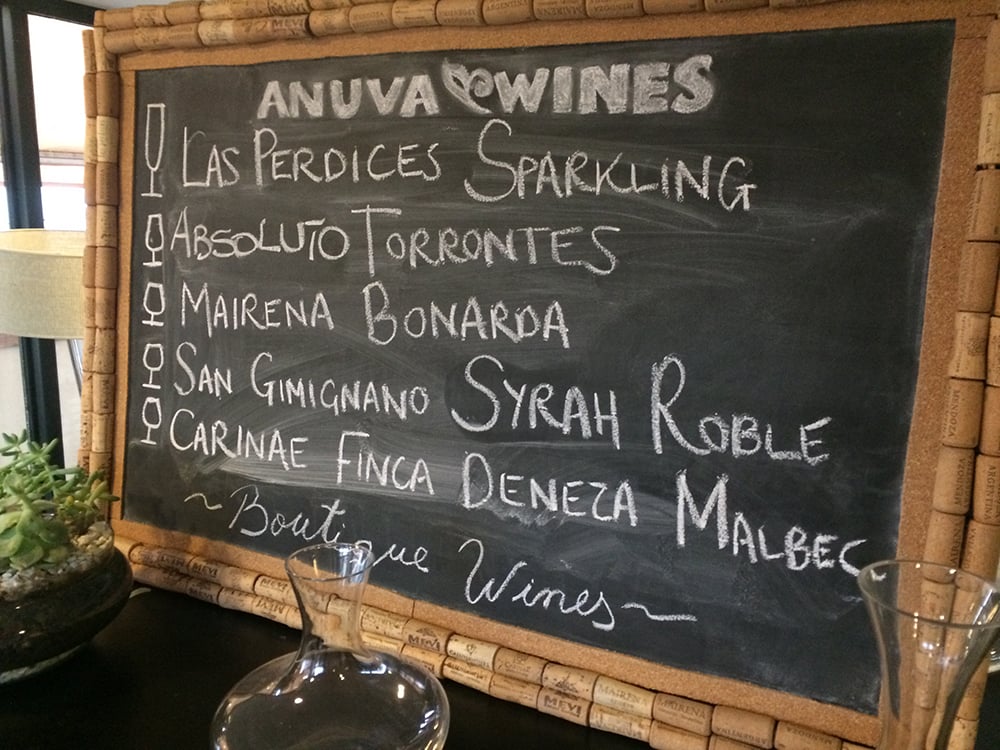 ANUVA WINES
LAS PERDICES SPARKLING
ABSOLUTO TORRONTES
MAIRENA BONARDA
SAN GIMIGNANO SYRAH ROBLE
CARINAE FINCA DENEZA MALBEC
~Boutique Wines~
MEVI
MEVI
MEVI
MEVI
MAIRENA
MAIRENA